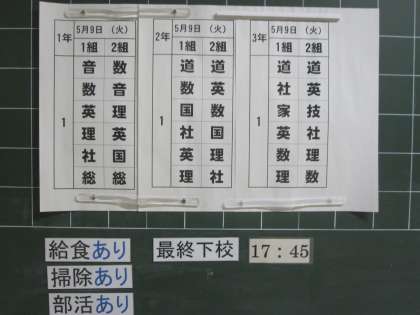 1年 5月9日 (火)
1組 2組
1
音 数
数 音
英 理
理 英
社 国
総 総
2年 5月9日 (火)
1組 2組
1
道 道
数 英
国 数
社 国
英 理
理 社
3年 5月9日 (火)
1組 2組
1
道 道
社 英
家 技
英 社
数 理
理 数
給食あり 最終下校 17:45
掃除あり
部活あり